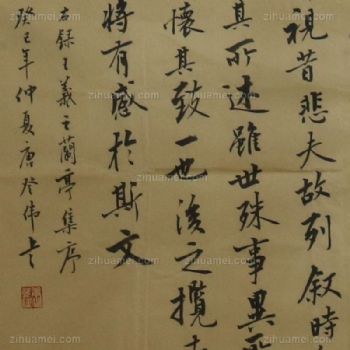 視昔悲夫故列叙時
其所述雖世殊事異所
懷其致一也後之攬
將有感於斯文
右錄王羲之蘭亭集序
癸巳年仲夏唐登偉書
zihuamei.com